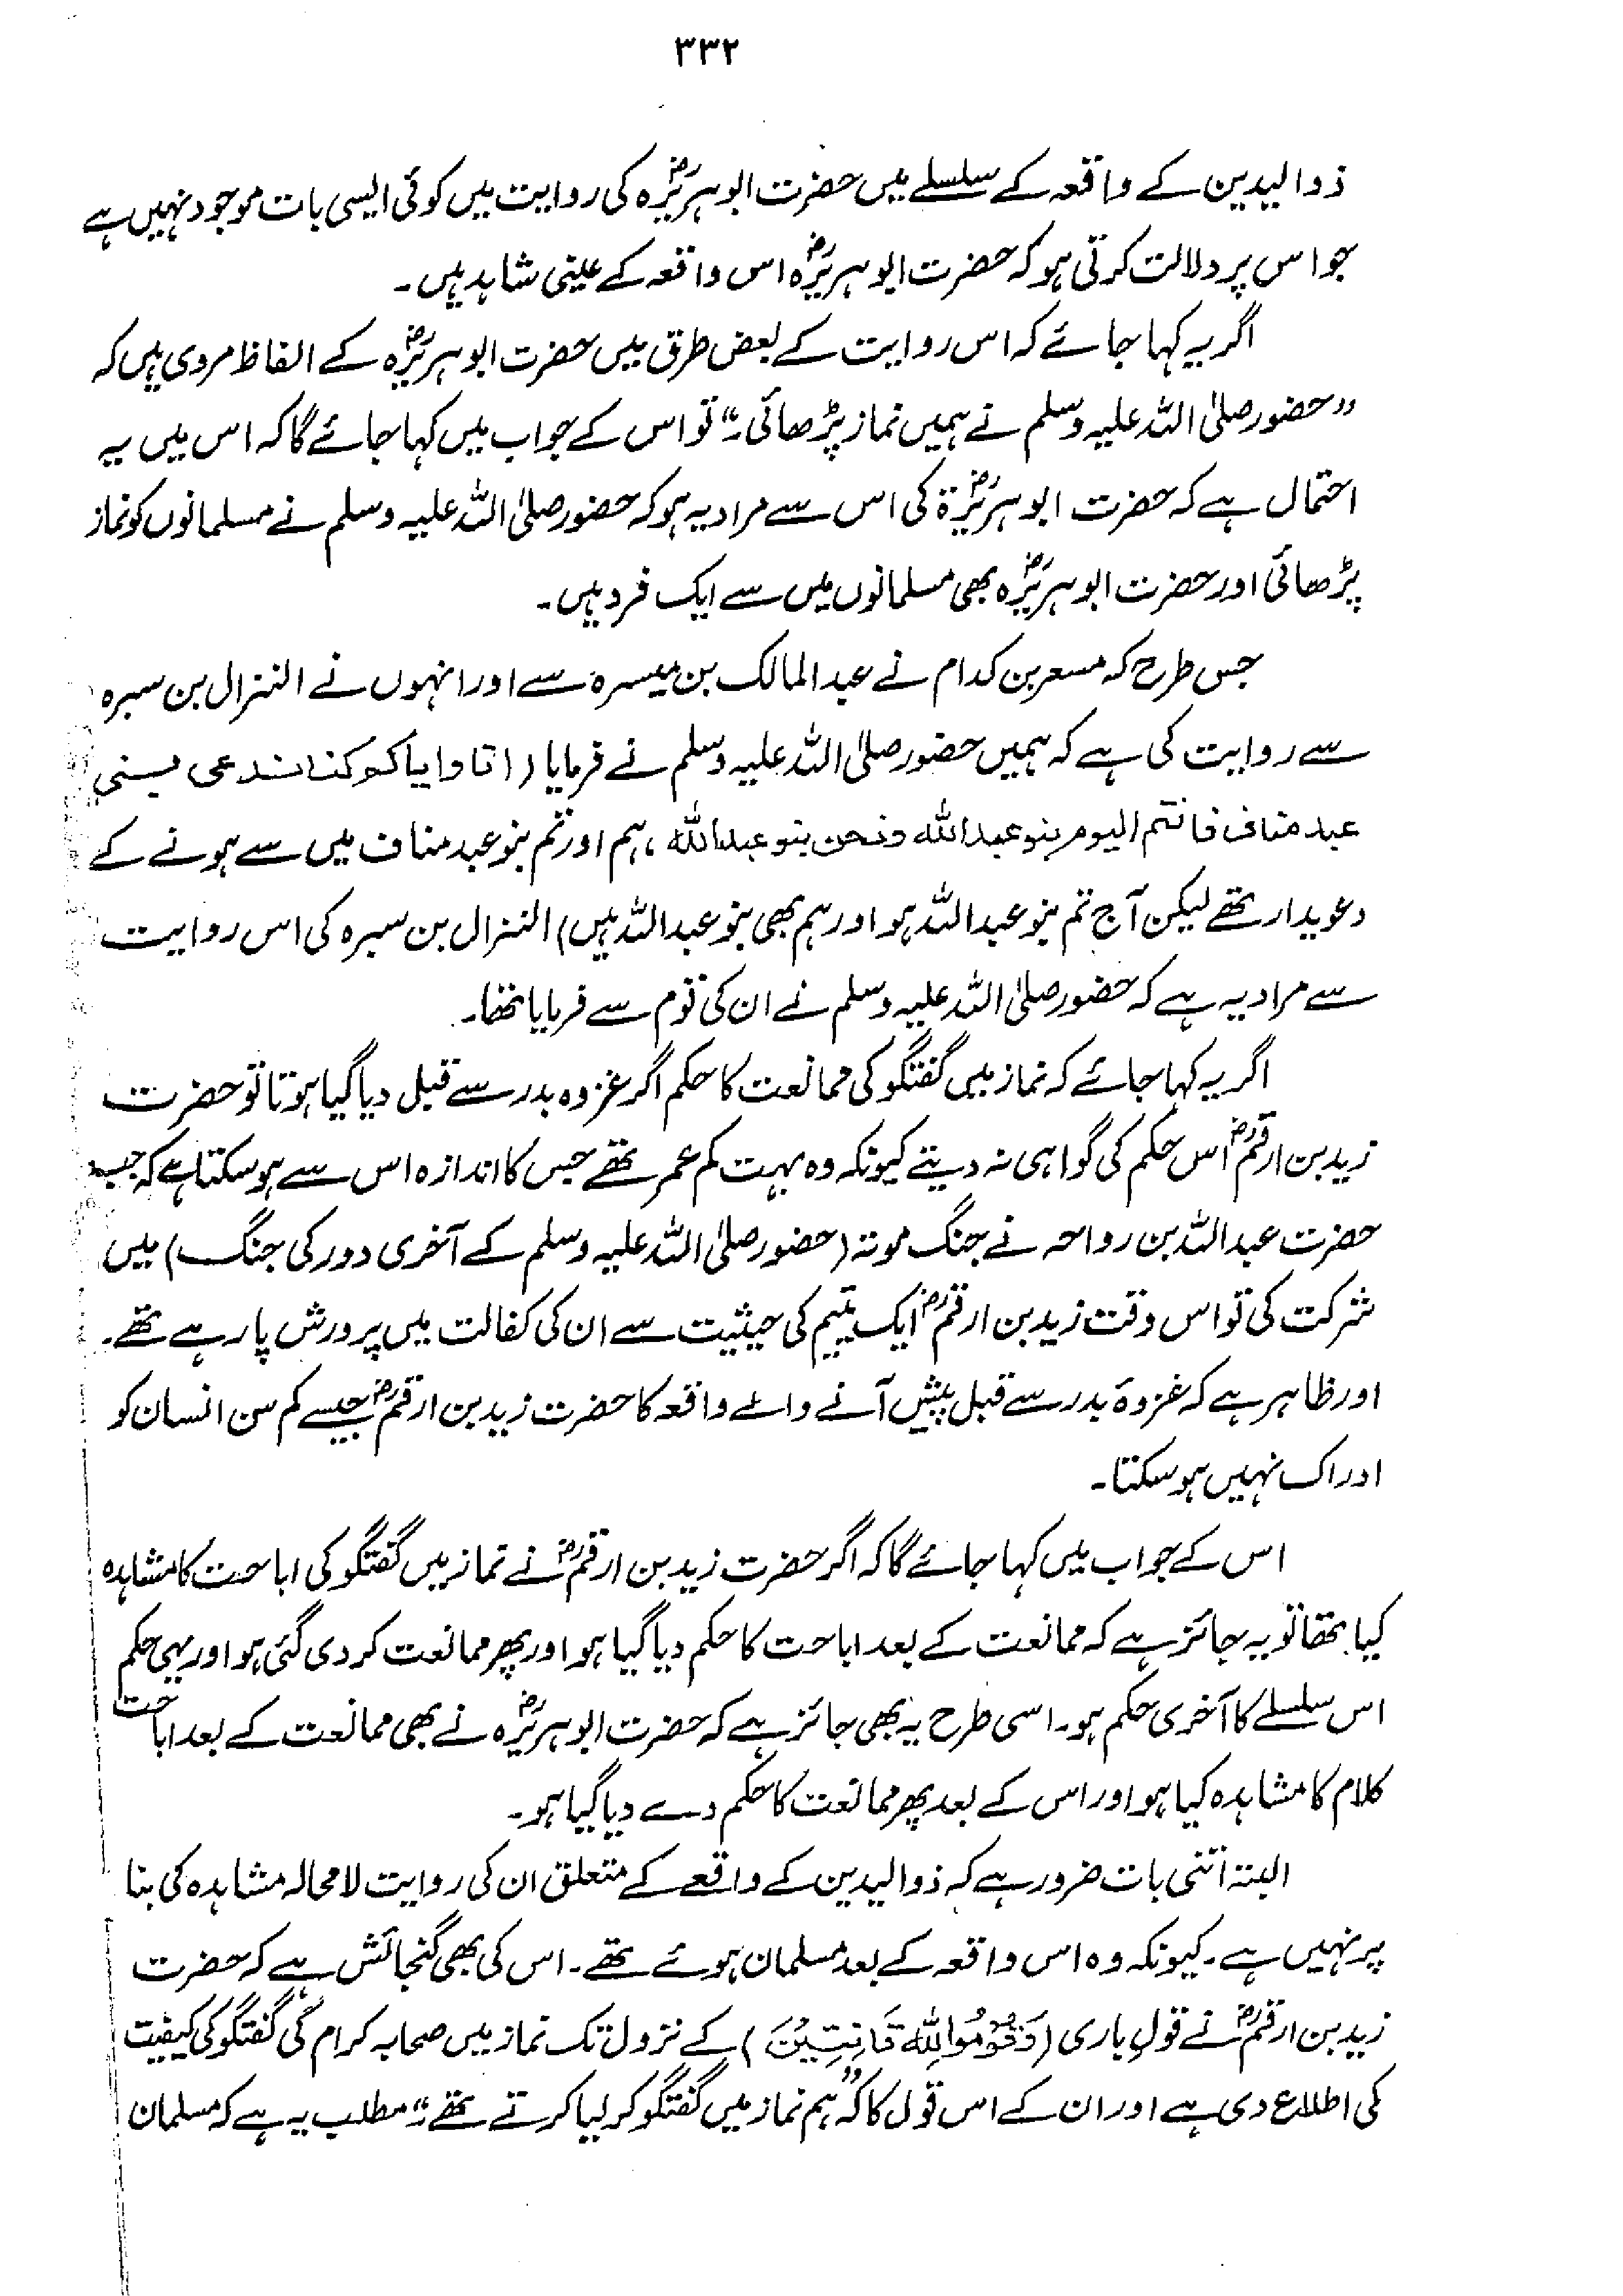 ۳۳۲
ذوالیدین کے واقعہ کے سلسلے میں حضرت ابوہریرہؓ کی روایت میں کوئی ایسی بات موجود نہیں ہے
جو اس پر دلالت کرتی ہو کہ حضرت ابوہریرہؓ اس واقعہ کے عینی شاہد ہیں۔
اگر یہ کہا جائے کہ اس روایت کے بعض طرق میں حضرت ابوہریرہؓ کے الفاظ مروی ہیں کہ
"حضور صلی اللہ علیہ وسلم نے ہمیں نماز پڑھائی۔" تو اس کے جواب میں کہا جائے گا کہ اس میں یہ
احتمال ہے کہ حضرت ابوہریرۃؓ کی اس سے مراد یہ ہو کہ حضور صلی اللہ علیہ وسلم نے مسلمانوں کو نماز
پڑھائی اور حضرت ابوہریرہؓ بھی مسلمانوں میں سے ایک فرد ہیں۔
جس طرح کہ مسعر بن کدام نے عبدالمالک بن میسرہ سے اور انہوں نے النزال بن سبرہ
سے روایت کی ہے کہ ہمیں حضور صلی اللہ علیہ وسلم نے فرمایا (انا وایاکم کنا ندعی بنی
عبد مناف فانتم الیوم بنو عبداللہ ونحن بنو عبداللہ، ہم اور تم بنو عبد مناف میں سے ہونے کے
دعویدار تھے لیکن آج تم بنو عبداللہ ہو اور ہم بھی بنو عبداللہ ہیں) النزال بن سبرہ کی اس روایت
سے مراد یہ ہے کہ حضور صلی اللہ علیہ وسلم نے ان کی قوم سے فرمایا تھا۔
اگر یہ کہا جائے کہ نماز میں گفتگو کی ممانعت کا حکم اگر غزوہ بدر سے قبل دیا گیا ہوتا تو حضرت
زید بن ارقمؓ اس حکم کی گواہی نہ دیتے کیونکہ وہ بہت کم عمر تھے جس کا اندازہ اس سے ہوسکتا ہے کہ جب
حضرت عبداللہ بن رواحہ نے جنگ موتہ (حضور صلی اللہ علیہ وسلم کے آخری دور کی جنگ) میں
شرکت کی تو اس وقت زید بن ارقمؓ ایک یتیم کی حیثیت سے ان کی کفالت میں پرورش پا رہے تھے۔
اور ظاہر ہے کہ غزوۂ بدر سے قبل پیش آنے والے واقعہ کا حضرت زید بن ارقمؓ جیسے کم سن انسان کو
ادراک نہیں ہوسکتا۔
اس کے جواب میں کہا جائے گا کہ اگر حضرت زید بن ارقمؓ نے نماز میں گفتگو کی اباحت کا مشاہدہ
کیا تھا تو یہ جائز ہے کہ ممانعت کے بعد اباحت کا حکم دیا گیا ہو اور پھر ممانعت کردی گئی ہو اور یہی حکم
اس سلسلے کا آخری حکم ہو۔ اسی طرح یہ بھی جائز ہے کہ حضرت ابوہریرہؓ نے بھی ممانعت کے بعد اباحت
کلام کا مشاہدہ کیا ہو اور اس کے بعد پھر ممانعت کا حکم دے دیا گیا ہو۔
البتہ اتنی بات ضرور ہے کہ ذوالیدین کے واقعے کے متعلق ان کی روایت لامحالہ مشاہدہ کی بنا
پر نہیں ہے۔ کیونکہ وہ اس واقعہ کے بعد مسلمان ہوئے تھے۔ اس کی بھی گنجائش ہے کہ حضرت
زید بن ارقمؓ نے قولِ باری (وَقُوْمُوْا لِلّٰهِ قَانِتِيْنَ) کے نزول تک نماز میں صحابہ کرام کی گفتگو کی کیفیت
کی اطلاع دی ہے اور ان کے اس قول کا کہ "ہم نماز میں گفتگو کر لیا کرتے تھے" مطلب یہ ہے کہ مسلمان